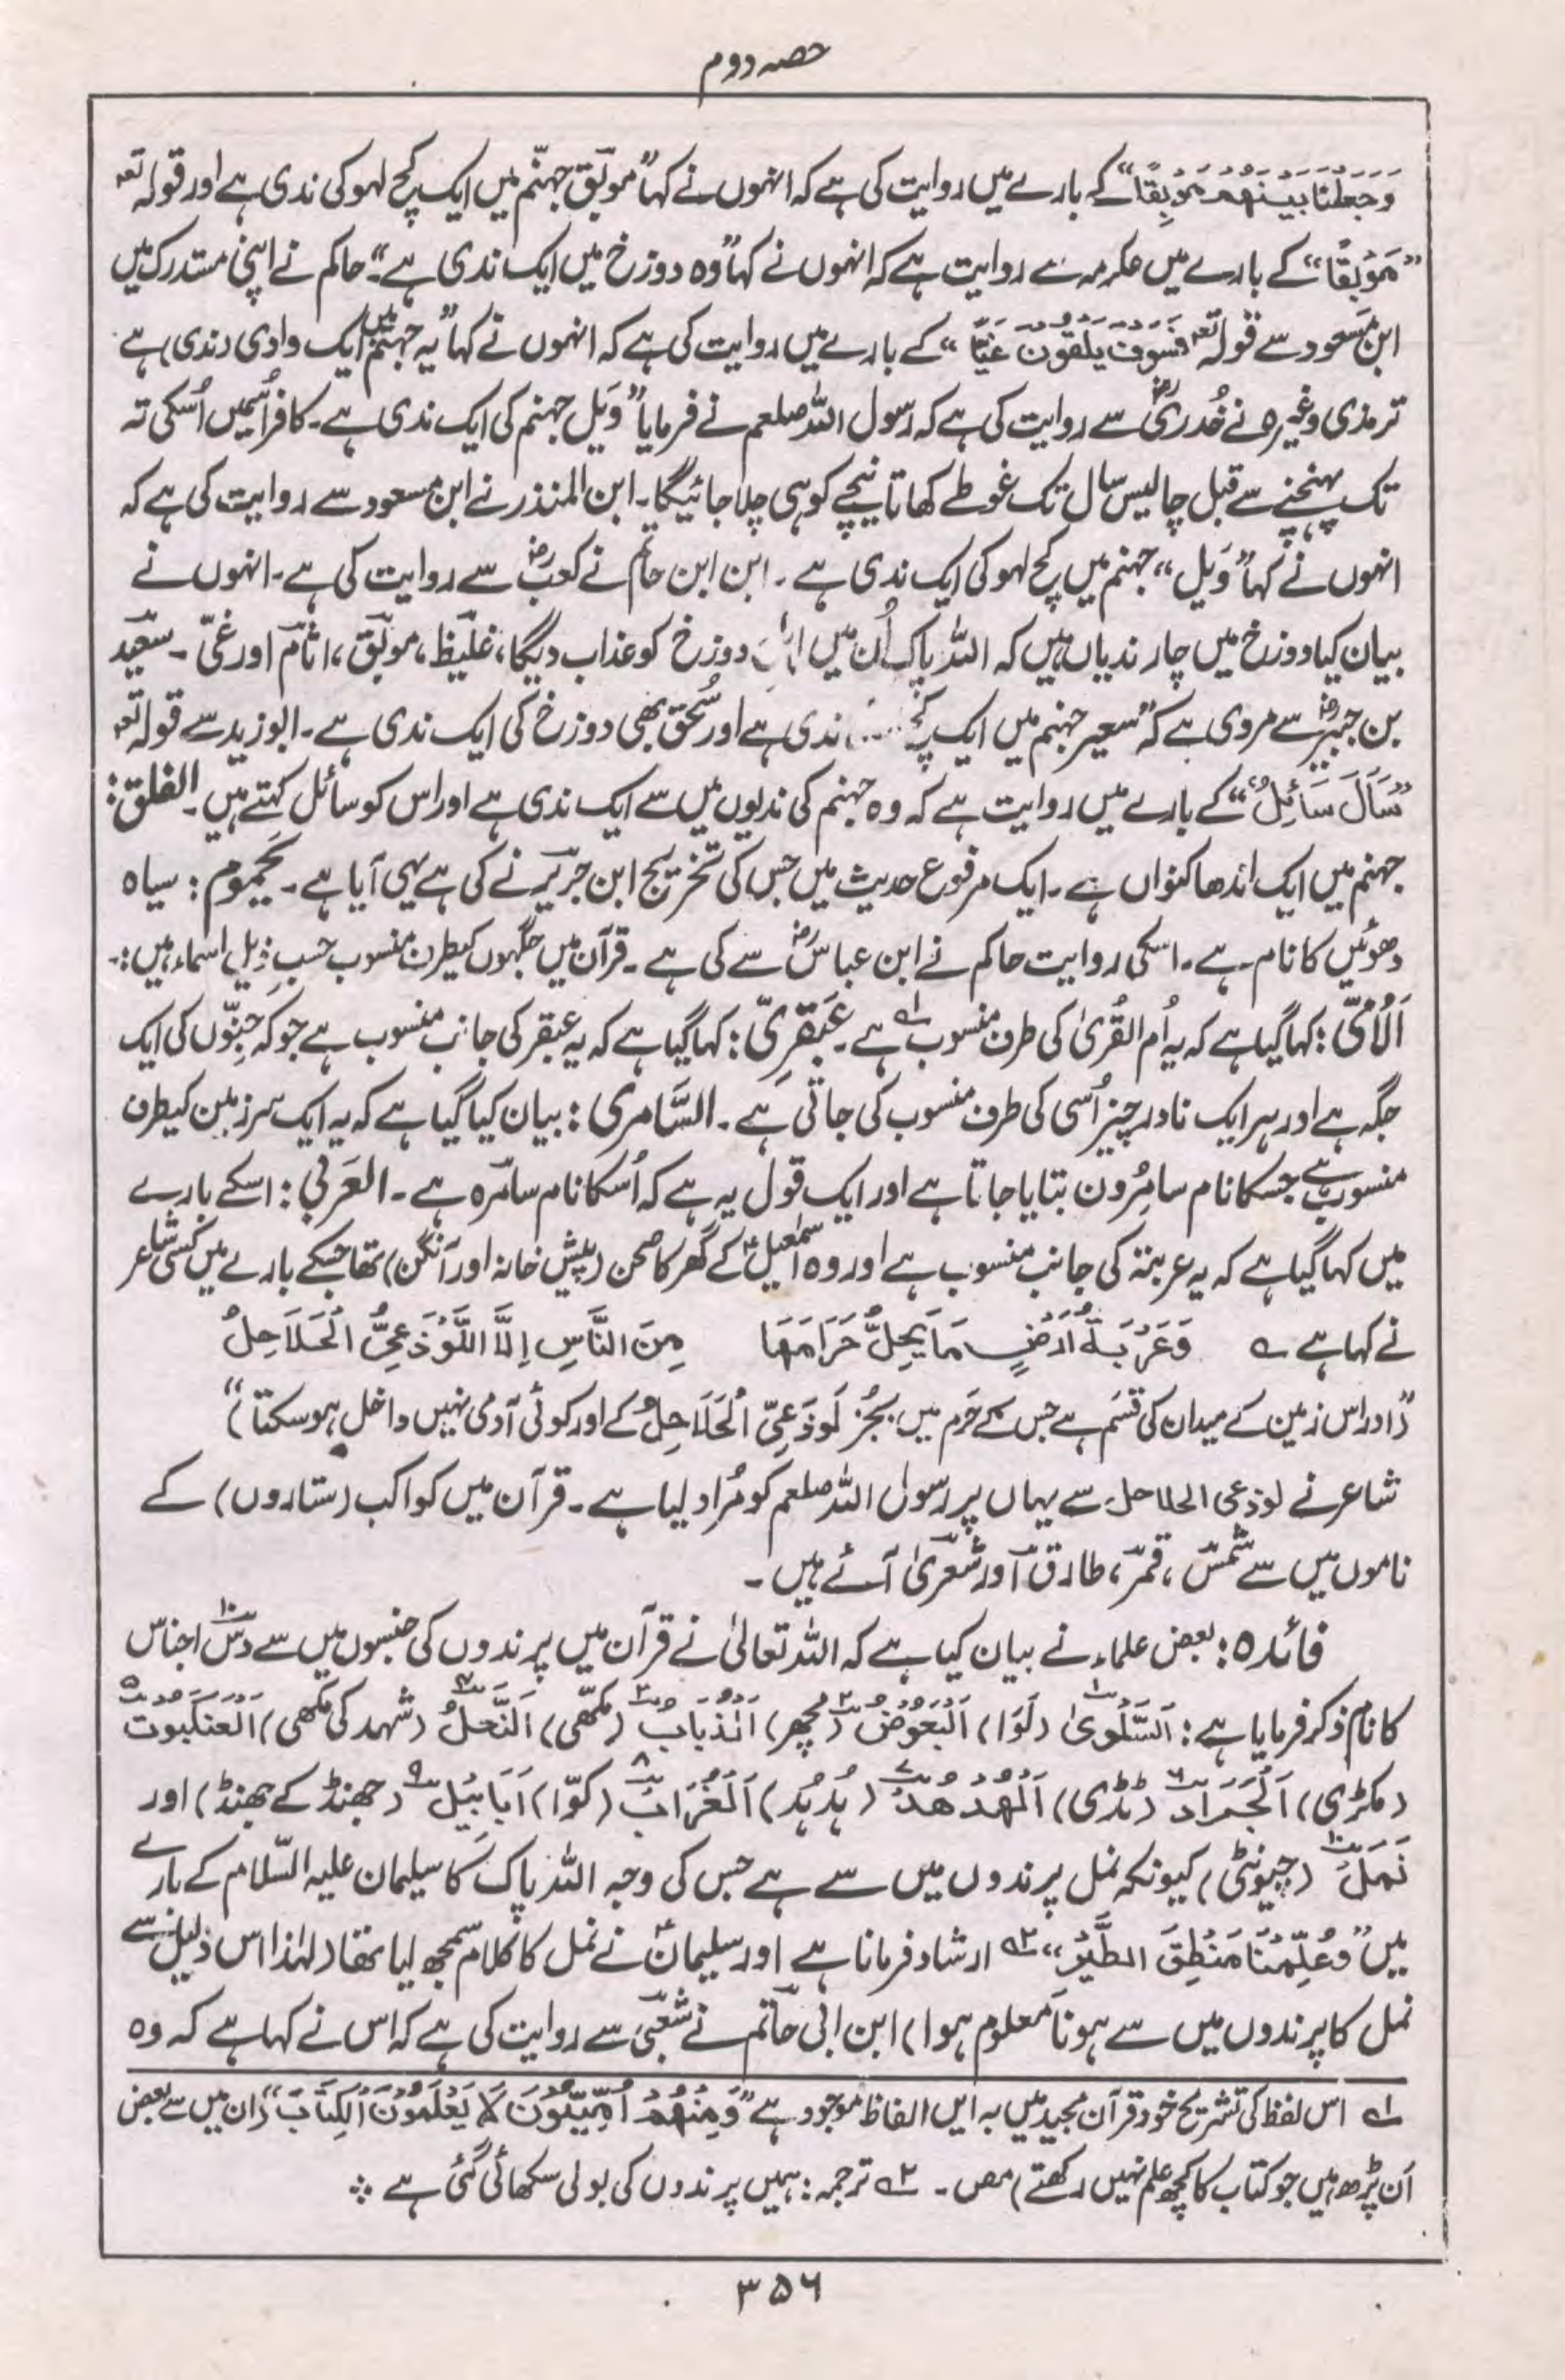 حصہ دوم
وَجَعَلْنَا بَيْنَهُمْ مَوْبِقًا“ کے بارے میں روایت کی ہے کہ انہوں نے کہا ”موبق جہنّم میں ایک کچ لہو کی ندی ہے اور قولہ تعہ
”مَوْبِقًا“ کے بارے میں عکرمہ سے روایت ہے کہ انہوں نے کہا ”وہ دوزخ میں ایک ندی ہے“۔ حاکم نے اپنی مستدرک میں
ابن مسعود سے قولہ تعہ ”فَسَوْفَ يَلْقَوْنَ غَيًّا“ کے بارے میں روایت کی ہے کہ انہوں نے کہا ”یہ جہنم میں ایک وادی (ندی) ہے
ترمذی وغیرہ نے خُدری رضؓ سے روایت کی ہے کہ رسول اللہ صلعم نے فرمایا ”وَیل جہنم کی ایک ندی ہے۔ کافر اُسمیں اُسکی تہ
تک پہنچنے سے قبل چالیس سال تک غوطے کھاتا نیچے کو ہی چلا جائیگا۔ ابن المنذر نے ابن مسعود سے روایت کی ہے کہ
انہوں نے کہا ”وَیل“ جہنم میں کچ لہو کی ایک ندی ہے۔ ابن ابن حاتم نے کعبؓ سے روایت کی ہے۔ انہوں نے
بیان کیا دوزخ میں چار ندیاں ہیں کہ اللہ پاک اُن میں دوزخ کو عذاب دیگا، غلیظ، موبق، اثام اور غیّ۔ سعید
بن جبیرؓ سے مروی ہے کہ ”سعیر جہنم میں ایک کچ ندی ہے اور سُحق بھی دوزخ کی ایک ندی ہے۔ ابوزید سے قولہ تعہ
”سَأَلَ سَائِلٌ“ کے بارے میں روایت ہے کہ وہ جہنم کی ندیوں میں سے ایک ندی ہے اور اس کو سائل کہتے ہیں۔ الفلق:
جہنم میں ایک اندھا کنواں ہے۔ ایک مرفوع حدیث میں جس کی تخریج ابن جریر نے کی ہے یہی آیا ہے۔ یحموم: سیاہ
دھوئیں کا نام ہے۔ اسکی روایت حاکم نے ابن عباسؓ سے کی ہے۔ قرآن میں جگہوں کیطرف منسوب حسبِ ذیل اسماء ہیں:۔
اَلْاُمِّیّ: کہا گیا ہے کہ یہ اُم القُریٰ کی طرف منسوب ہے ۱؎۔ عَبْقَرِیّ: کہا گیا ہے کہ یہ عبقر کی جانب منسوب ہے جو کہ جِنّوں کی ایک
جگہ ہے اور ہر ایک نادر چیز اُسی کی طرف منسوب کی جاتی ہے۔ السَّامری: بیان کیا گیا ہے کہ یہ ایک سرزمین کیطرف
منسوب ہے جسکا نام سامِرُون بتایا جاتا ہے اور ایک قول یہ ہے کہ اُسکا نام سامرہ ہے۔ العَرَبی: اسکے بارے
میں کہا گیا ہے کہ یہ عربتہ کی جانب منسوب ہے اور وہ اسمٰعیلؑ کے گھر کا صحن (پیش خانہ اور آنگن) تھا جسکے بارے میں کسی شاعر
نے کہا ہے ؎ وَعَرْبَةُ اَرْضٍ مَا يُحِلُّ حَرَامَهَا مِنَ النَّاسِ اِلَّا اللَّوْذَعِيُّ الْحَلَاحِلُ
”(اور اس زمین کے میدان کی قسَم ہے جس کے حَرم میں بجُز لَوذَعِیّ الْحَلَاحِلُ کے اور کوئی آدمی نہیں داخل ہو سکتا)“
شاعر نے لوذعی الحلاحل سے یہاں پر رسول اللہ صلعم کو مُراد لیا ہے۔ قرآن میں کواکب (ستاروں) کے
ناموں میں سے شمس، قمر، طارق اور شعریٰ آئے ہیں۔
فائدہ: بعض علماء نے بیان کیا ہے کہ اللہ تعالیٰ نے قرآن میں پرندوں کی جنسوں میں سے دس۱۰ اجناس
کا نام ذکر فرمایا ہے: اَلسَّلْوٰی۱ (لَوَا) اَلْبَعُوْضُ۲ (مچھر) اَلذُّبَابُ۳ (مکھّی) اَلنَّحْلُ۴ (شہد کی مکھی) اَلْعَنْكَبُوْتُ۵
(مکڑی) اَلْجَرَادُ۶ (ٹڈی) اَلْهُدْهُدُ۷ (ہُدہُد) اَلْغُرَابُ۸ (کوّا) اَبَابِیْل۹ (جھنڈ کے جھنڈ) اور
نَمْلَ۱۰ (چیونٹی) کیونکہ نمل پرندوں میں سے ہے جس کی وجہ اللہ پاک کا سیلمان علیہ السّلام کے بارے
میں ”وَعُلِّمْنَا مَنْطِقَ الطَّيْرِ“ ۲؎ ارشاد فرمانا ہے اور سیلمانؑ نے نمل کا کلام سمجھ لیا تھا (لہٰذا اس دلیل سے
نمل کا پرندوں میں سے ہونا معلوم ہوا) ابن ابی حاتم نے شعبی سے روایت کی ہے کہ اس نے کہا ہے کہ وہ
۱؎ اس لفظ کی تشریح خود قرآن مجید میں بہ ایں الفاظ موجود ہے ”وَمِنْهُمْ اُمِّيُّوْنَ لَا يَعْلَمُوْنَ الْكِتَابَ“ (ان میں سے بعض
اَن پڑھ ہیں جو کتاب کا کچھ علم نہیں رکھتے) مص۔ ۲؎ ترجمہ: ہمیں پرندوں کی بولی سکھائی گئی ہے ❖
۳۵۶